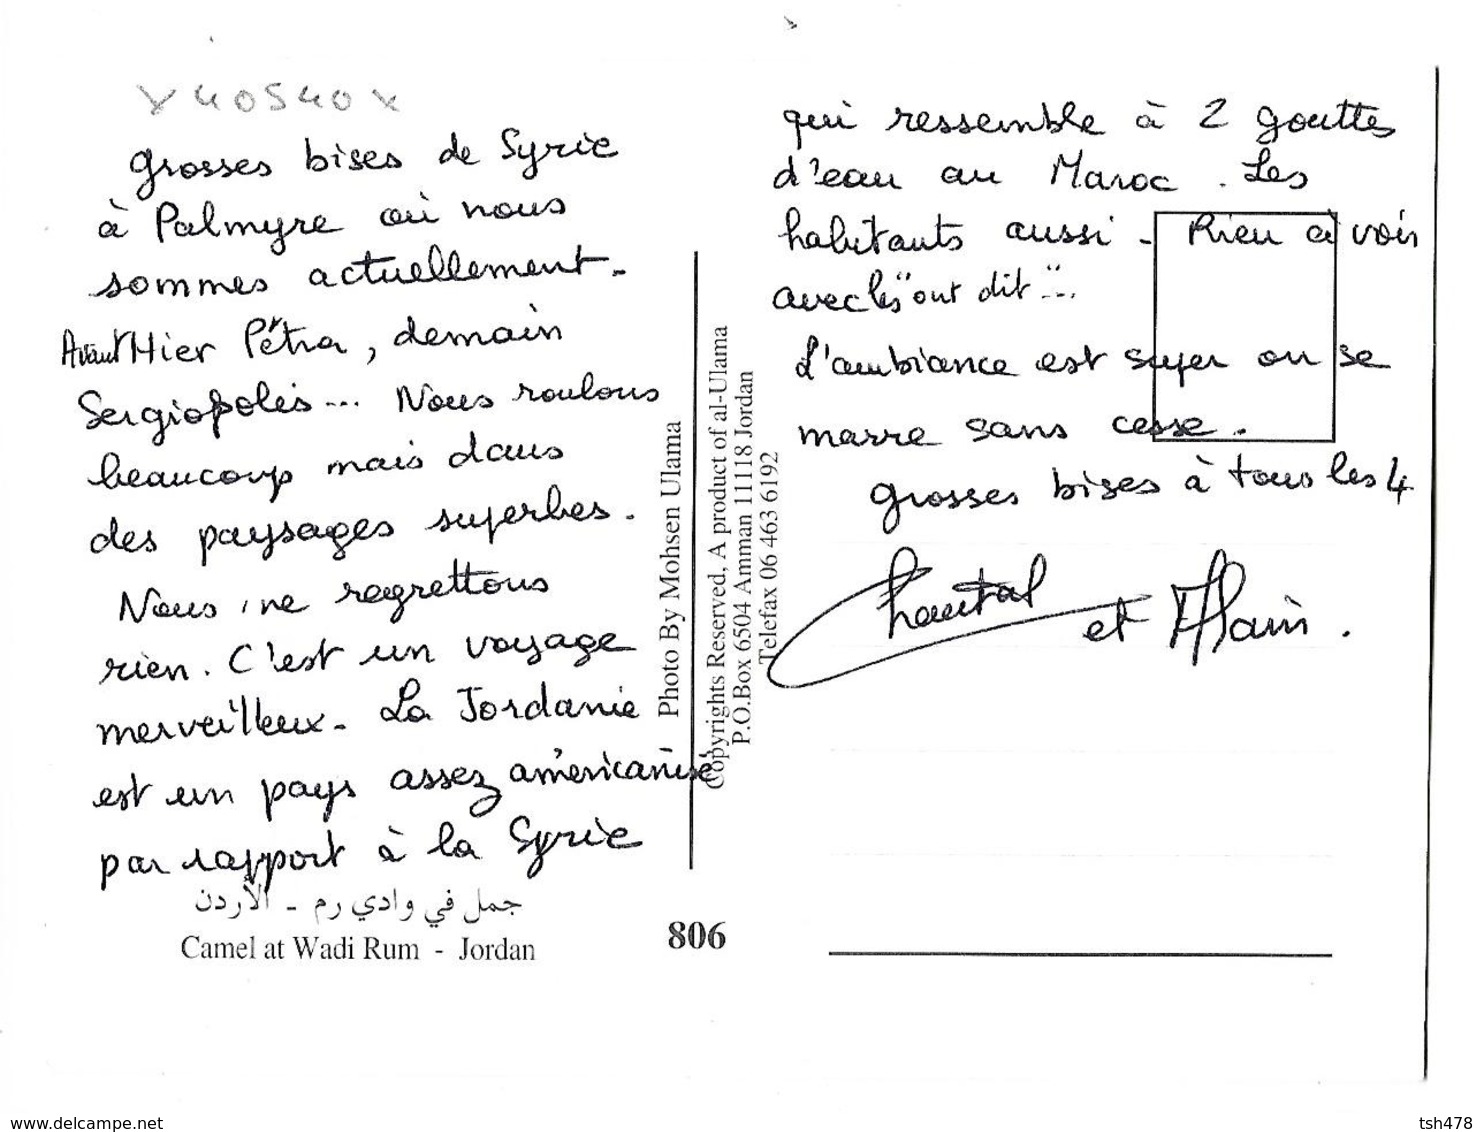 x 40540 x
grosses bises de Syrie
à Palmyre où nous
sommes actuellement.
Avant Hier Pétra, demain
Sergiopolis... Nous roulons
beaucoup mais dans
des paysages superbes.
Nous ne regrettons
rien. C'est un voyage
merveilleux. La Jordanie
est un pays assez américanisé
par rapport à la Syrie
جمل في وادي رم - الأردن
Camel at Wadi Rum - Jordan
Photo By Mohsen Ulama
Copyrights Reserved, A product of al-Ulama
P.O.Box 6504 Amman 11118 Jordan
Telefax 06 463 6192
806
qui ressemble à 2 gouttes
d'eau au Maroc. Les
habitants aussi - Rien à voir
avec les "out dit"...
L'ambiance est super on se
marre sans cesse.
grosses bises à tous les 4
Chantal
et Alain.
www.delcampe.net
tsh478